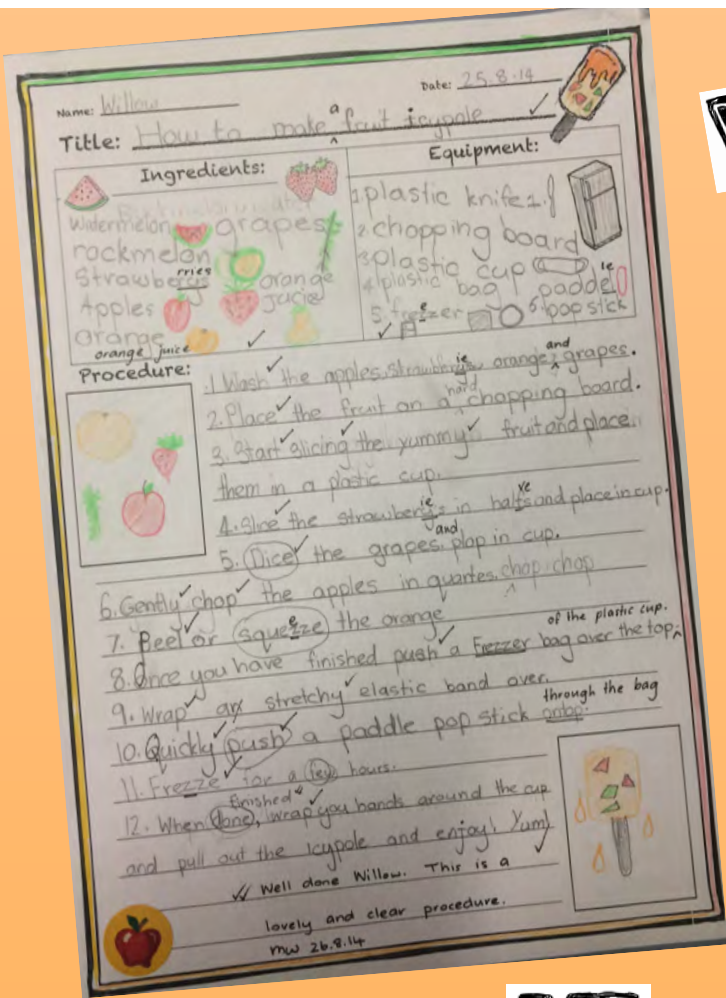 Name: Willow
Date: 25.8.14
Title: How to make a fruit icypole
Ingredients:
Watermelon grapes
rockmelon
Strawberrys rries orange
Apples jucie
Orange
orange juice
Equipment:
1. plastic knife
2. chopping board
3. plastic cup
4. plastic bag paddel le
5. frezzer e 6. pop stick
Procedure:
1. Wash the apples, strawberrys, ie orange, and grapes.
2. Place the fruit on a hard chopping board.
3. Start slicing the yummy fruit and place
them in a plastic cup.
4. Slice the strawberrys ie in halfs ve and place in cup.
5. Dice the grapes. and plop in cup.
6. Gently chop the apples in quartes. chop chop
7. Peel or squezze e the orange
8. Once you have finished push a Frezzer bag over the top of the plastic cup.
9. Wrap an stretchy elastic band over.
10. Quickly push a paddle pop stick ontop. through the bag
11. Frezze for a few hours.
12. When done, finished wrap you hands around the cup
and pull out the Icypole and enjoy! Yum!
Well done Willow. This is a
lovely and clear procedure.
mw 26.8.14